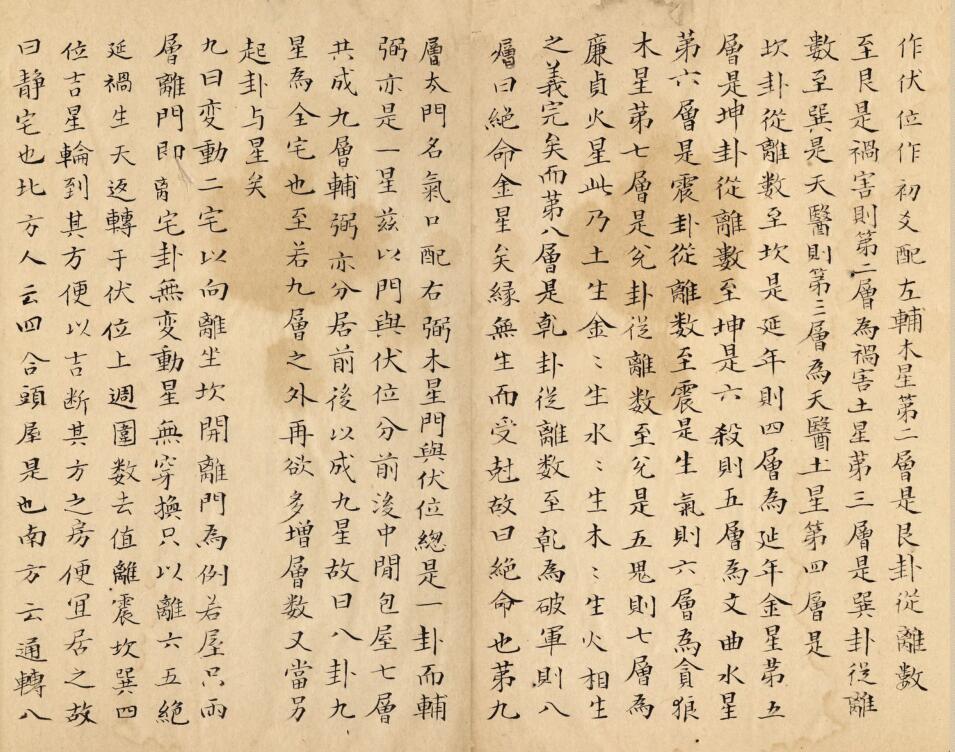 作伏位作初爻配左輔木星第二層是艮卦從離數
至艮是禍害則第二層為禍害土星第三層是巽卦從離
數至巽是天醫則第三層為天醫土星第四層是
坎卦從離數至坎是延年則四層為延年金星第五
層是坤卦從離數至坤是六殺則五層為文曲水星
第六層是震卦從離數至震是生氣則六層為貪狼
木星第七層是兌卦從離数至兌是五鬼則七層為
廉貞火星此乃土生金〻生水〻生木〻生火相生
之義完矣而第八層是乹卦從離数至乹為破軍則八
層曰絶命金星矣縁無生而受尅故曰絶命也第九
層太門名氣口配右弼木星門與伏位總是一卦而輔
弼亦是一星兹以門與伏位分前後中間包屋七層
共成九層輔弼亦分居前後以成九星故曰八卦九
星為全宅也至若九層之外再欲多增層数又當另
起卦与星矣
九曰変動二宅以向離坐坎開離門為例若屋只兩
層離門即离宅卦無変動星無穿換只以離六五絶
延禍生天返轉于伏位上週圍数去值離震坎巽四
位吉星輪到其方便以吉断其方之房便宜居之故
曰静宅也北方人云四合頭屋是也南方云通轉八